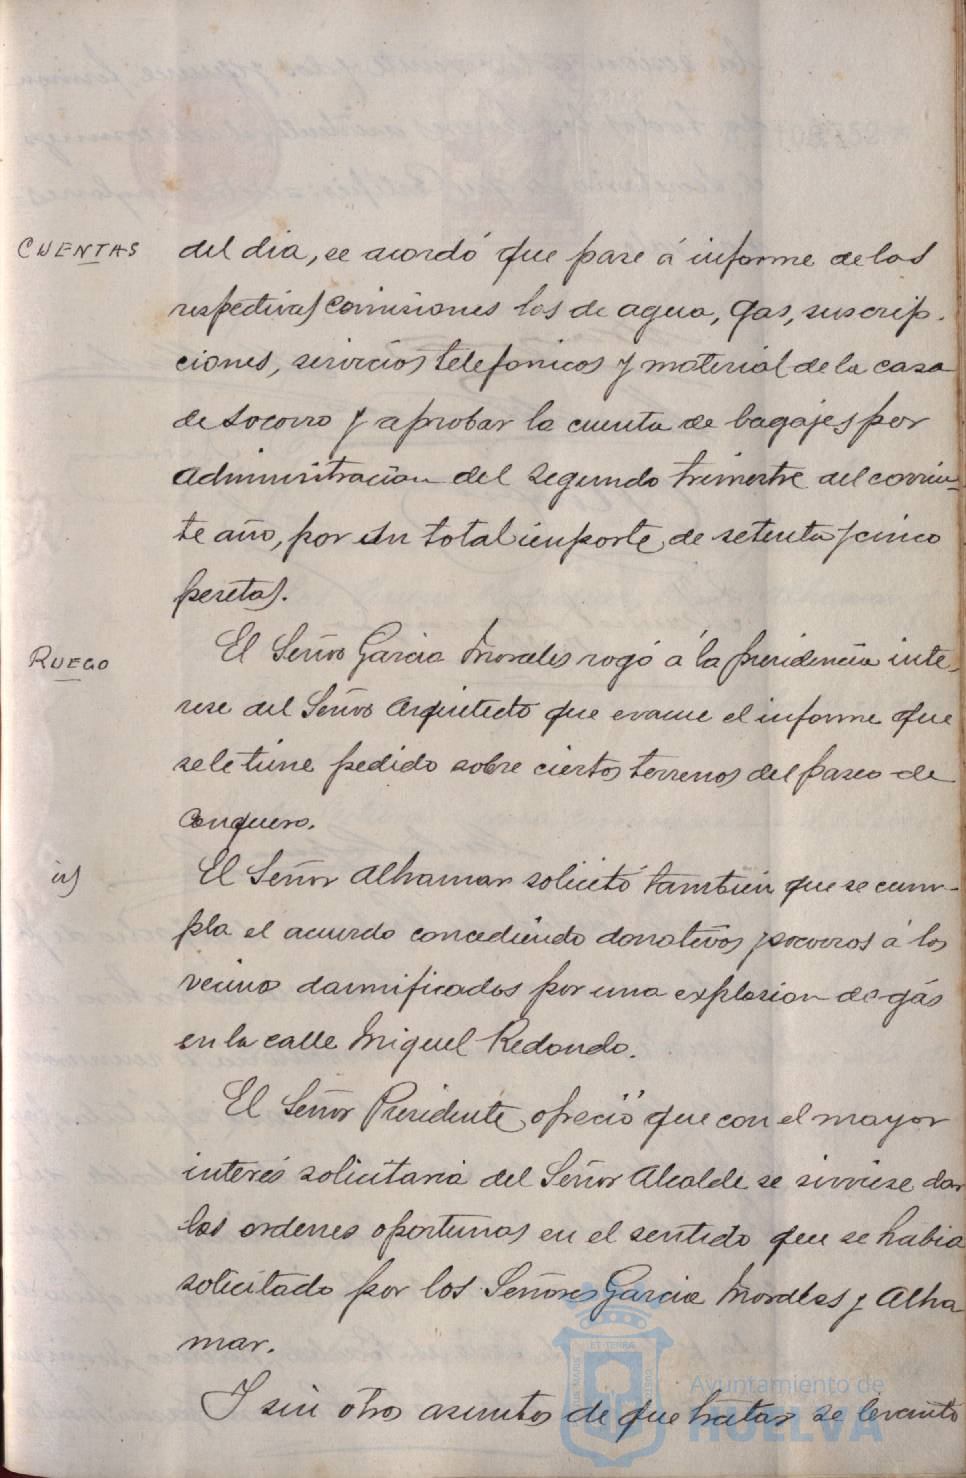 CUENTAS
del dia, se acordó que pase á informe de las
respectivas Comisiones las de agua, gas, suscrip-
ciones, servicios telefonicos y material de la casa
de Socorro y aprobar la cuenta de bagajes por
administración del segundo trimestre del corrien-
te año, por un total importe de setenta y cinco
pesetas.
RUEGO
El Señor Garcia Morales rogó á la presidencia inte-
rese del Señor Arquitecto que evacue el informe que
se le tiene pedido sobre ciertos terrenos del paseo de
Conquero.
id
El Señor Alhamar solicitó también que se cum-
pla el acuerdo concediendo donativos socorros á los
vecinos damnificados por una explosion de gás
en la calle Miguel Redondo.
El Señor Presidente ofreció que con el mayor
interés solicitaria del Señor Alcalde se sirviese dar
las ordenes oportunas en el sentido que se habia
solicitado por los Señores Garcia Morales y Alha
mar.
Y sin otros asuntos de que tratar se levantó
ET TERRA
Ayuntamiento de
HUELVA